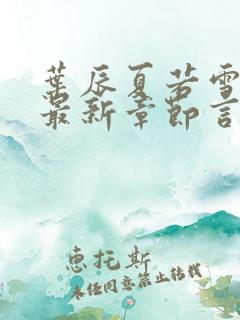 葉辰夏若雪
最新章節言
恵托斯
未经同意禁止转载